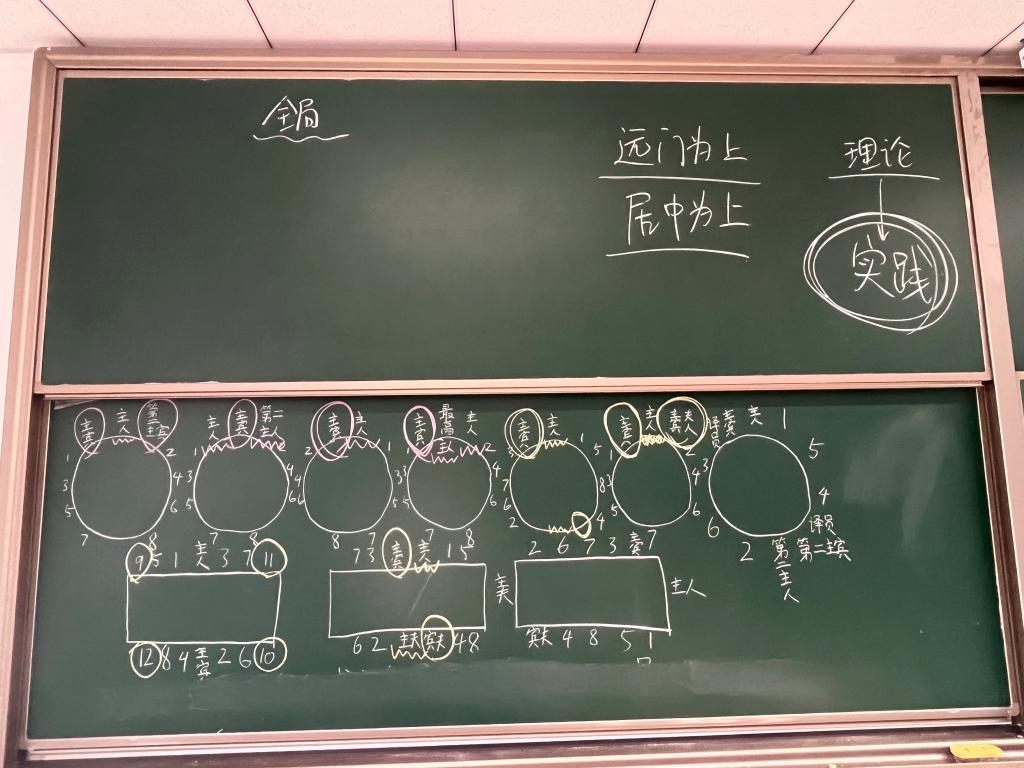 全局
远门为上
居中为上
理论
实践
主宾 主人 第二主宾
1 2
3 4
5 6
7 8
主人 主宾 第二主人
1 2
3 4
5 6
7 8
主宾 主人
2 1
3
5
8 7
主宾 最高 主人
1 2
3 4
5 6
7 8
主宾 主人 1
3 5
7 8
6
2 4
主宾 主人
1 2
3 4
5 6
7
译员 主宾 主人 1
3 5
6 4
2 第二主人 第二主宾 译员
9 5 1 主人 3 7 11
12 8 4 主宾 2 6 10
7 3 主宾 主人 1 5
6 2 4 8
2 6 7 3 主宾
主人
4 8 5 1